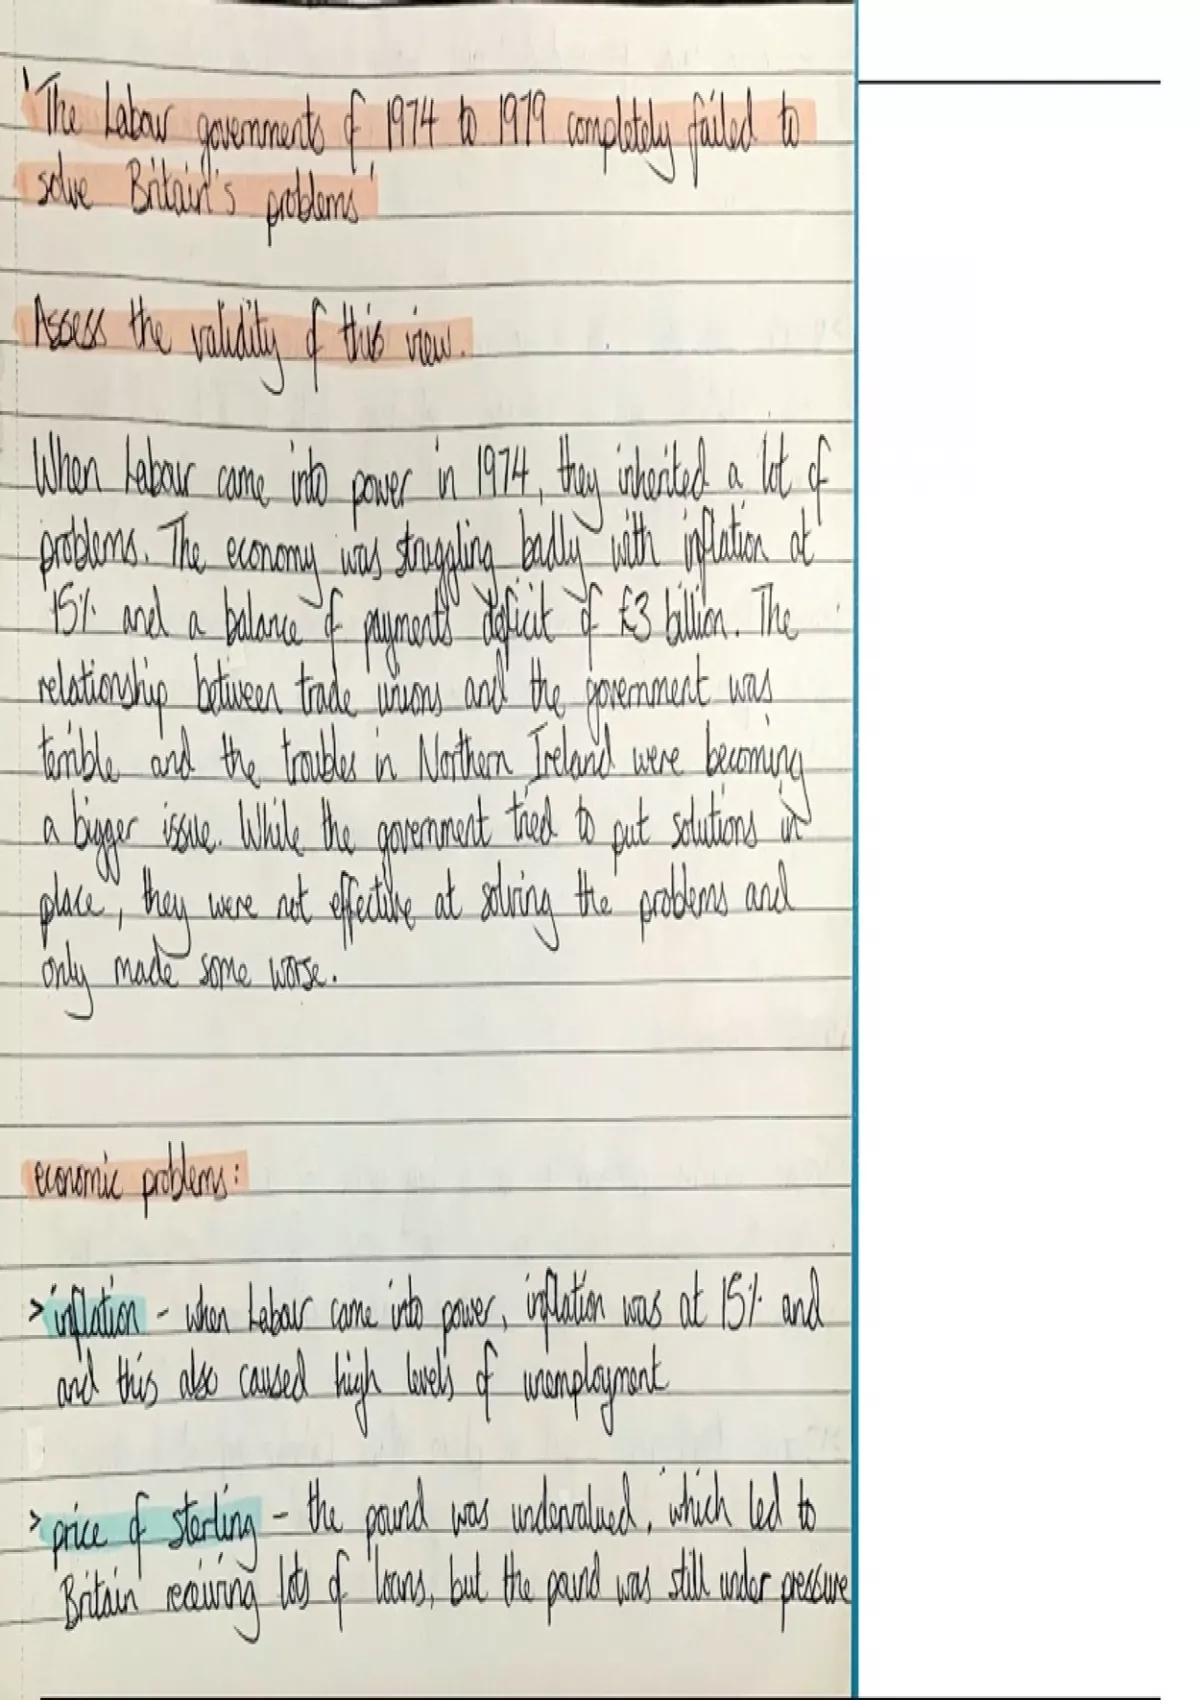 'The Labour governments of 1974 to 1979 completely failed to
solve Britain's problems'
Assess the validity of this view.
When Labour came into power in 1974, they inherited a lot of
problems. The economy was struggling badly with inflation at
15% and a balance of payments deficit of £3 billion. The
relationship between trade unions and the government was
terrible and the troubles in Northern Ireland were becoming
a bigger issue. While the government tried to put solutions in
place, they were not effective at solving the problems and
only made some worse.
economic problems:
> inflation - when Labour came into power, inflation was at 15% and
and this also caused high levels of unemployment
> price of sterling - the pound was undervalued, which led to
Britain receiving lots of loans, but the pound was still under pressure